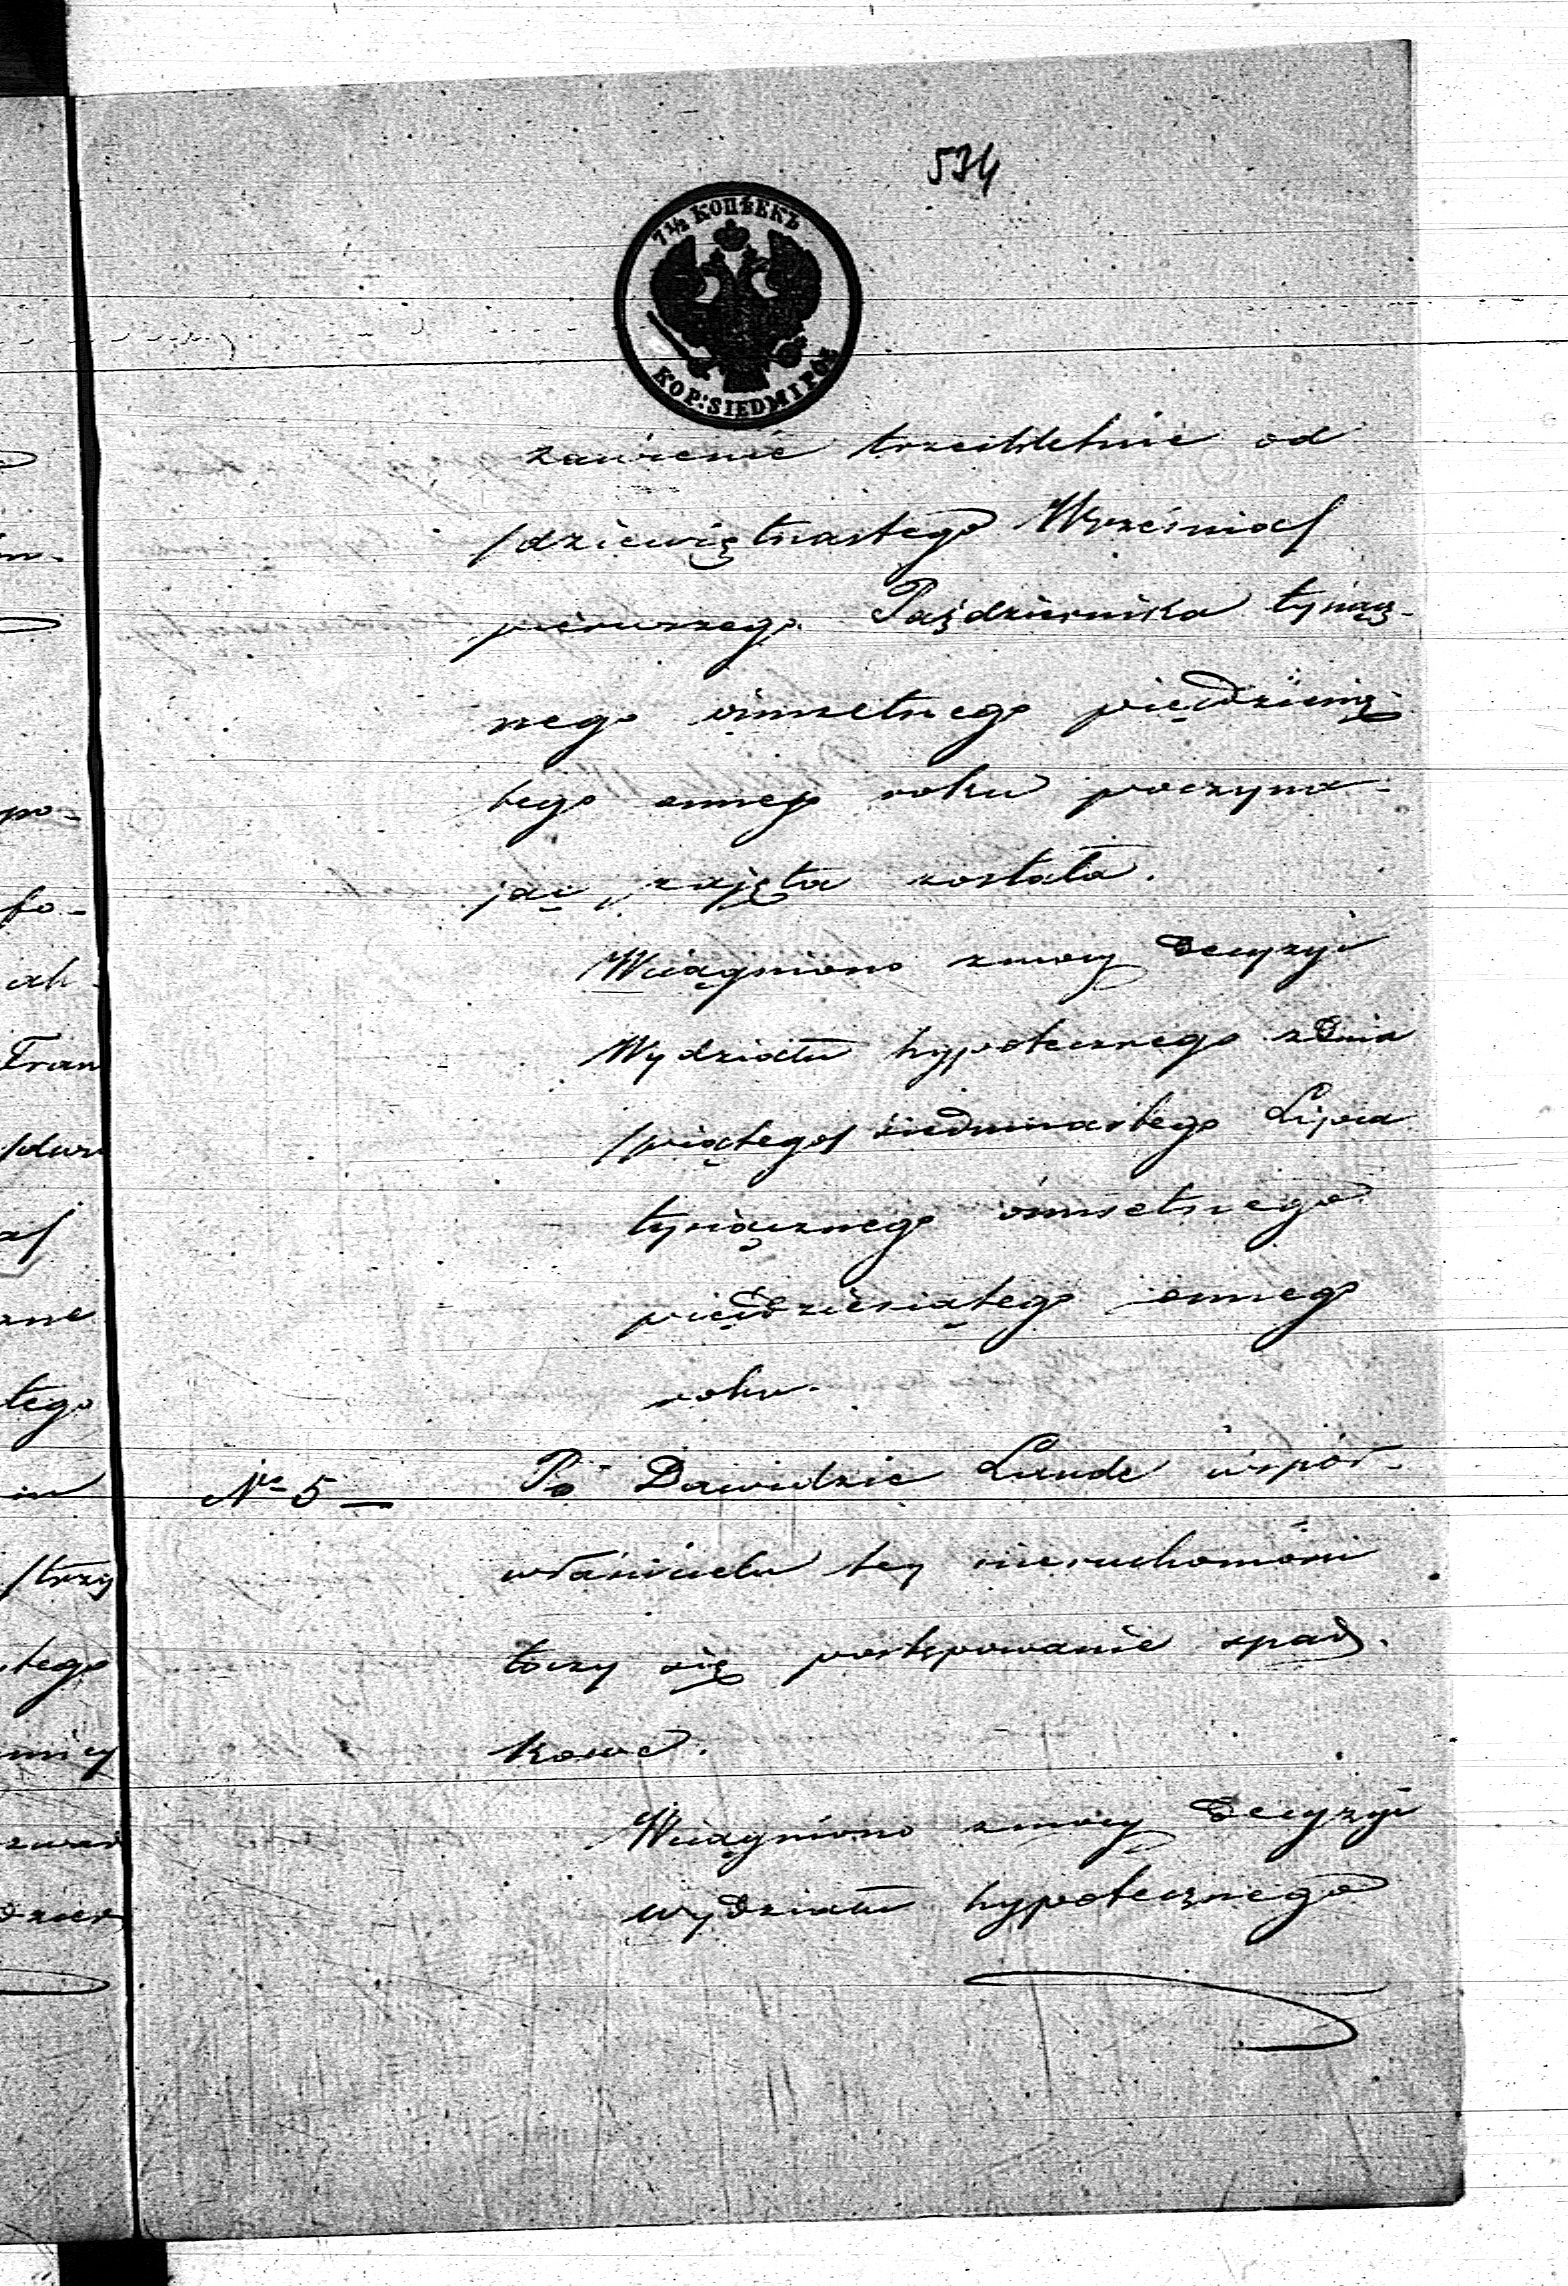 534
7 1/2 КОПѢЕКЪ
KOP: SIEDM I PÓŁ
trzechletnie od
/dziewiętnastego Września/
pierwszego Października tysiącz-
nego ośmsetnego pięćdziesią-
tego ósmego roku poczyna-
jąc, zajęta została.
Wciągniono z mocy Decyzyi
Wydziału hypotecznego z Dnia
/piątego/ siedmnastego Lipca
tysiącznego ośmsetnego
pięćdziesiątego ósmego
roku.
No 5 — Po Dawidzie Lande współ-
właścicielu tey nieruchomości
toczy się postępowanie spad-
kowe.
Wciągniono z mocy Decyzyi
wydziału hypotecznego
po-
fo-
Fran
ane
tego
/trzy
tego